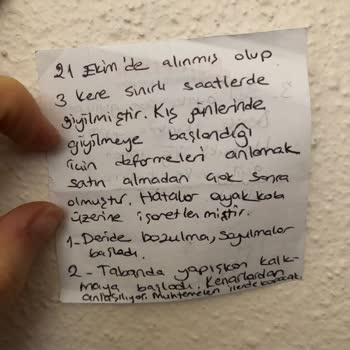 21 Ekim'de alınmış olup
3 kere sınırlı saatlerde
giyilmiştir. Kış günlerinde
giyilmeye başlandığı
için deformeleri anlamak
satın almadan çok sonra
olmuştur. Hatalar ayakkabı
üzerine işaretlenmiştir.
1- Deride bozulma, soyulmalar
başladı.
2- Tabanda yapışkan kalk-
maya başladı. Kenarlardan
anlaşılıyor. Muhtemelen ilerde kopacak.